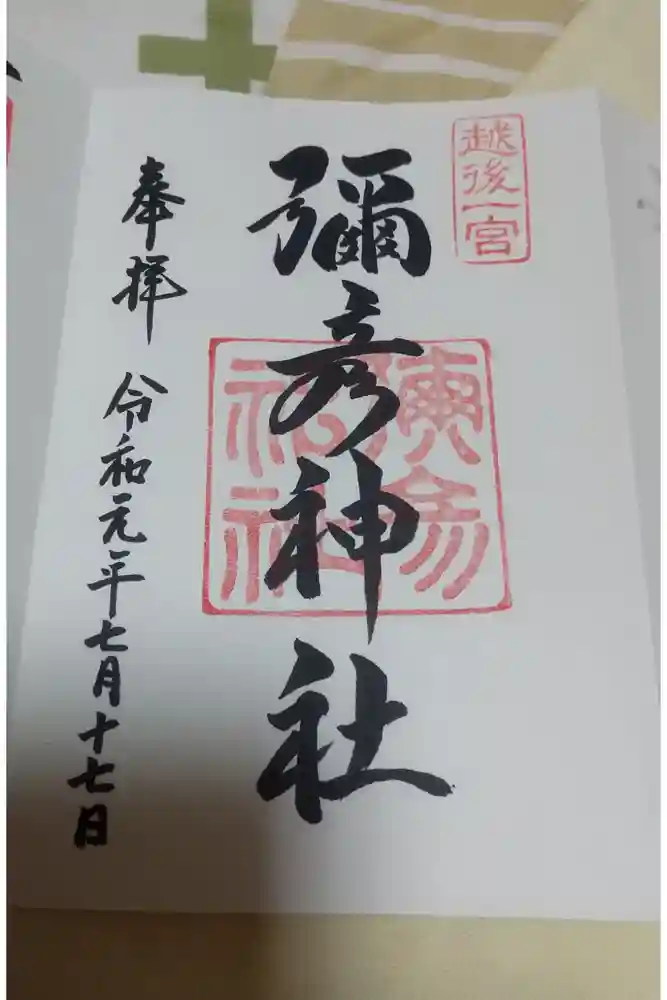 越後一宮
彌彦神社
奉拝 令和元年七月十七日